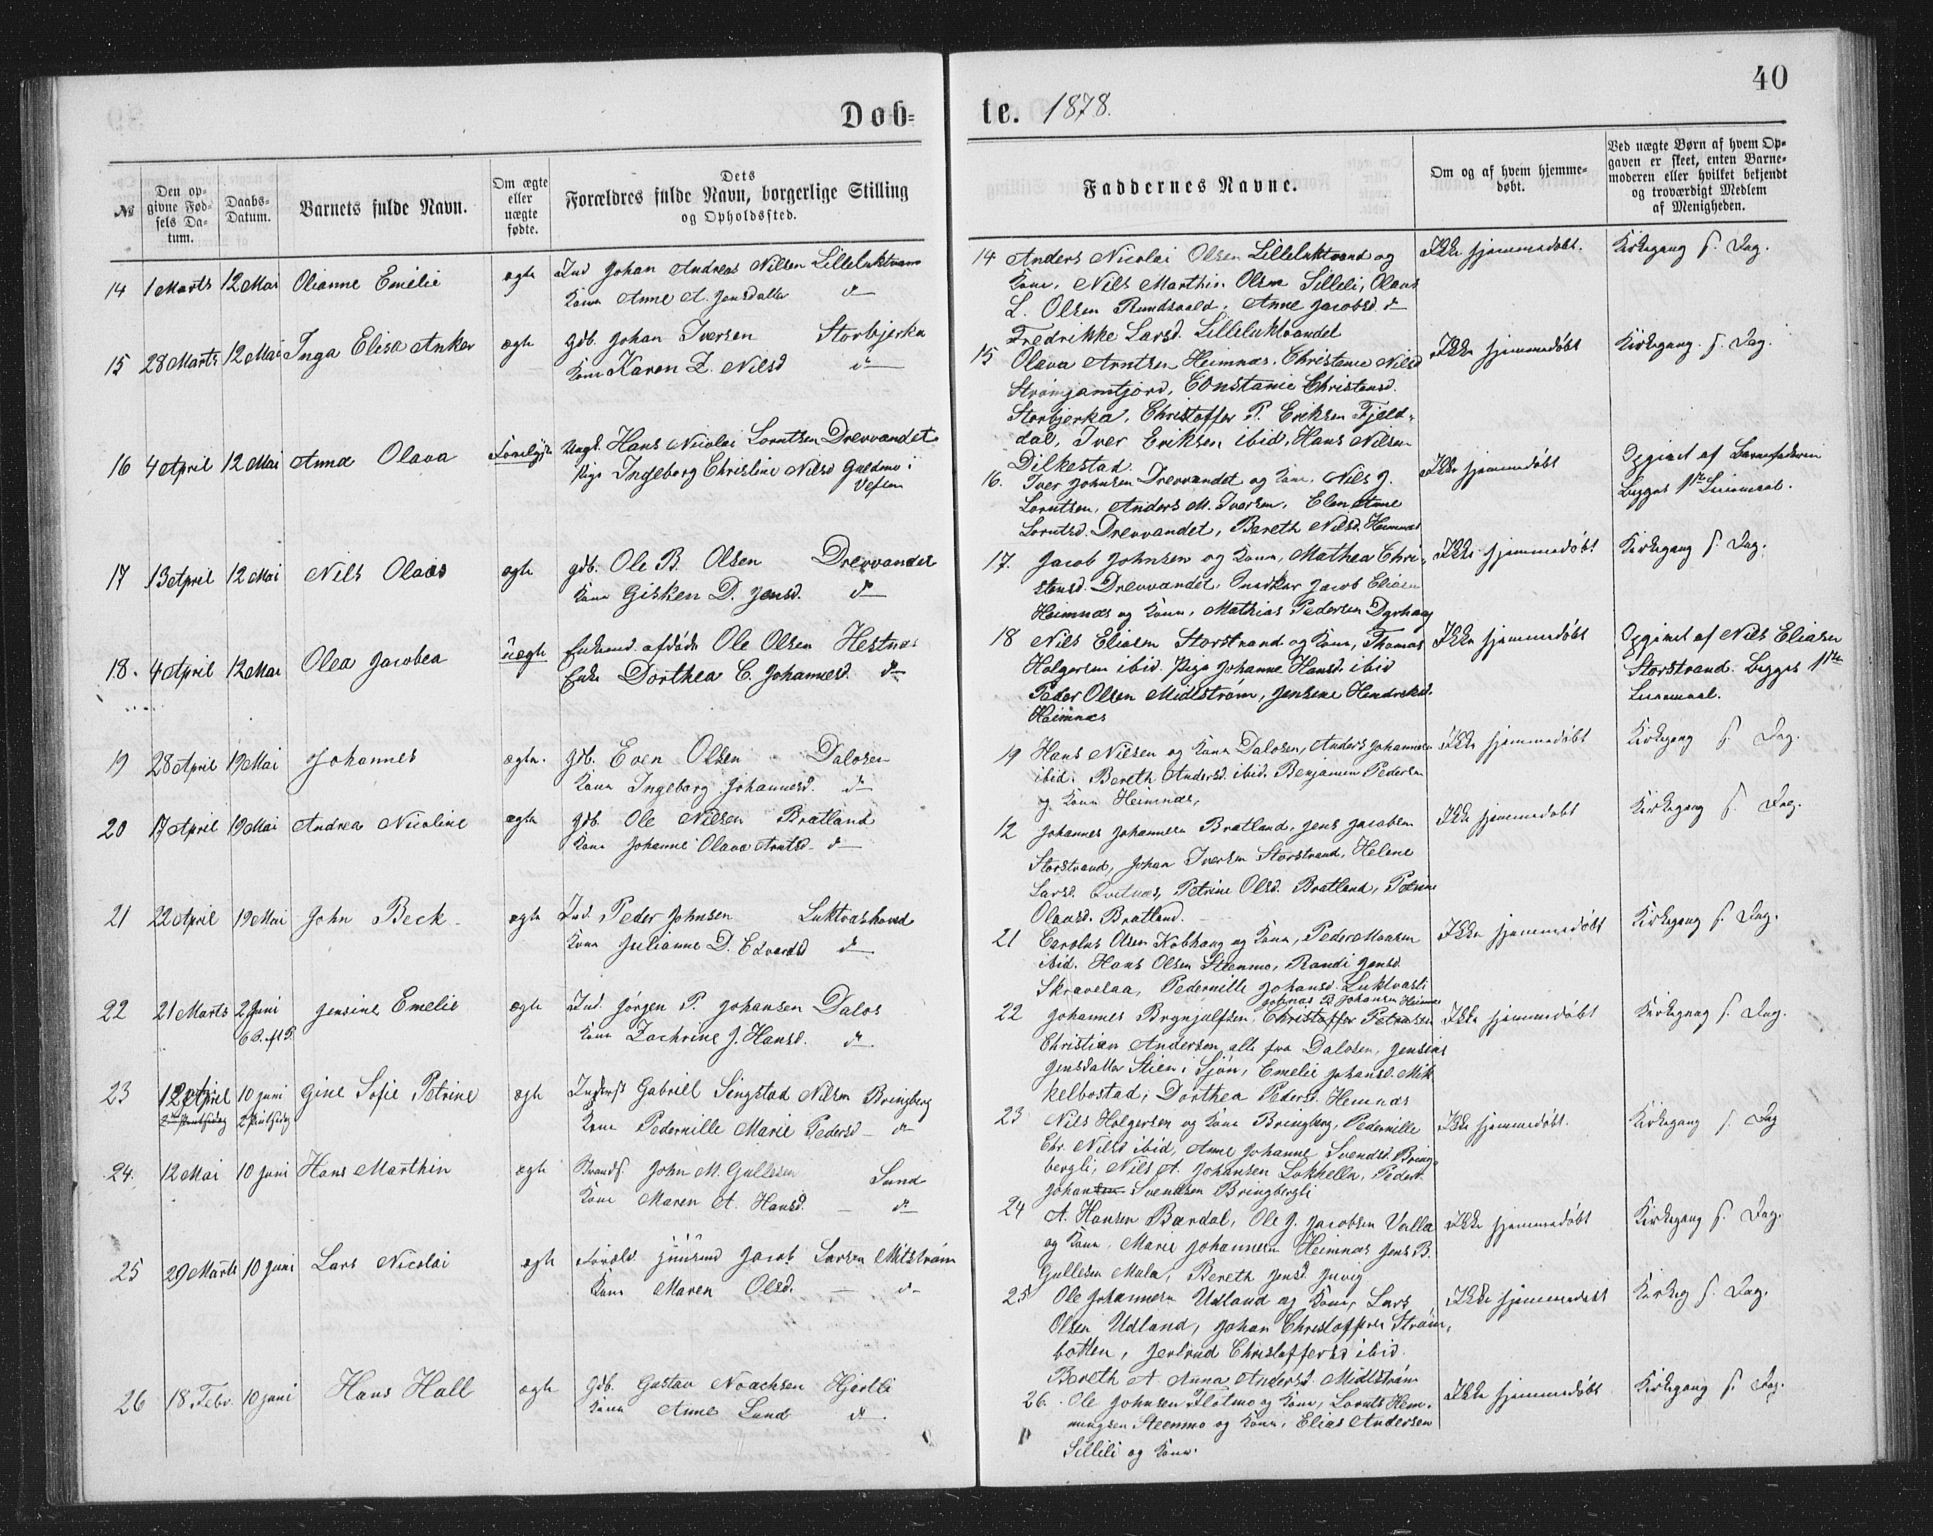 40
Døb=
te. 1878.
№
Den op-
givne Fød-
sels Da-
tum.
Daabs-
Datum.
Barnets fulde Navn.
Om ægte
eller
uægte
fødte.
Dets
Forældres fulde Navn, borgerlige Stilling
og Opholdssted.
14 1 Marts 12 Mai Olianne Emilie ægte Ind Johan Andreas Nilsen Lilleluktvand
Kone Anne A. Jensdatter d
15 28 Marts 12 Mai Inga Elisa Anker ægte Gdb. Johan Iversen Storbjerka
Kone Karen L. Nilsd d
16 4 April 12 Mai Anna Olava Ungk. Hans Nicolai Lorntsen Drevvandet
Pige Ingeborg Christine Nilsd i
Vefsen
17 13 April 12 Mai Nils Olaus ægte gdb. Ole B. Olsen Drevvandet
Kone Gisken D. Jensd. d
18. 4 April 12 Mai Olea Jacobea uægte afdøde Ole Olsen Hestnes
Enke Dorthea C. Johannesd. d
19 28 April 19 Mai Johannes ægte. gdb. Even Olsen Dalosen
Kone Ingeborg Johannesd. d
20 17 April 19 Mai Andrea Nicoline ægte gdb. Ole Nilsen Bratland
Kone Johanne Olava Arntsd. d
21 22 April 19 Mai John Beck ægte Ind. Peder Johnsen
Kone Julianne D. Edvardsd d
22 21 Marts 2 Juni Jensine Emelie ægte Ind. Jørgen P. Johansen Dalos
6 S. eft P. Kone Zachrine J. Hansd. d.
23 April 10 Juni Gine Sofie Petrine ægte Gabriel Singstad Nilsen Bringberg
2 Pintsedag Kone Pedernille Marie Pedersd d
24. 12 Mai 10 Juni Hans Marthin ægte Strands John M. Gullesen Sund
Kone Maren A. Hansd. d
25 29 Marts 10 Juni Lars Nicolai ægte Jacob Larsen Mitstrøm
Kone Maren Olsd. d
26 18 Febr 10 Juni Hans Hall ægte Gdb. Gustav Noachsen Hjertli
Kone Anne Lund d.
Faddernes Navne.
Om og af hvem hjemme-
døbt.
Ved uægte Børn af hvem Op-
gaven er skeet, enten Barne-
moderen eller hvilket bekjendt
og troværdigt Medlem
af Menigheden.
14 Anders Nicolai Olsen Lilleluktvand og Ikke hjemmedøbt. Kirkegang s. Dag.
Kone, Nils Marthin Olsen Sillili, Olaus
L. Olsen Anne Jacobsd d
Fredrikke Larsd. Lilleluktvandet
15 Olava Arntsen Heimnes, Christine Nilsd Ikke hjemmedøbt Kirkegang s. Dag.
Constanie Christensd.
Storbjerka, Christoffer P. Eriksen Fjeld-
dal, Iver Eriksen ibid, Hans Nilsen
Dilkestad.
16. Iver Johnsen Drevvandet og Kone, Nils J. Ikke hjemmedøbt Opgivet af Barnefaderen
Lorntsen, Anders M. Iversen, Elen Anne Begges 1ste Leiermaal.
Lorntsd. Drevvandet, Bereth Nilsd. Heimnes
17. Jacob Johnsen og Kone, Mathea Chri- Ikke hjemmedøbt Kirkegang s. Dag.
stensd. Drevvandet, Jacob Eliasen
Heimnes og Kone, Mathias Pedersen Dyrhaug
18 Nils Eliasen Storstrand og Kone, Thomas Ikke hjemmedøbt Opgivet af Nils Eliasen
Holgersen ibid. Pige Johanne Hansd. ibid Storstrand. Begges 1ste
Peder Olsen Midtstrøm, Jensine Hendriksd. Leiermaal.
Heimnes
19 Hans Nilsen og Kone Dalosen, Anders Johannesen Ikke hjemmedøbt Kirkegang s. Dag.
ibid. Bereth Andersd. ibid. Benjamin Pedersen
og Kone Heimnes,
12 Johannes Johannesen Bratland, Jens Jacobsen Ikke hjemmedøbt Kirkegang s. Dag.
Storstrand, Johan Iversen Storstrand, Helene
Larsd. Petrine Olsd. Bratland, Petrine
Olausd. Bratland.
21 Carolus Olsen Kobhaug og Kone, Peder Monsen Ikke hjemmedøbt Kirkegang s. Dag.
ibid. Hans Olsen Steenmo, Randi Jensd.
Skravelaa, Pedernille Johansd. Luktvasli
Johnas B. Johansen Heimnes
22 Johannes Brynjulfsen, Christoffer Petersen Ikke hjemmedøbt Kirkegang s. Dag.
Christian Andersen alle fra Dalosen, Jensine
Jensdatter Stien i Sjøn, Emelie Johansd. Mik
kelbostad, Dorthea Pedersd. Hemnæs
23 Nils Holgersen og Kone Bringberg, Pedernille Ikke hjemmedøbt. Kirkegang s. Dag
Chr. Nilsd ibid, Anne Johanne Svendsd. Bring-
bergli, Nils A. Johansen Lukhella, Peder
Johan Svendsen Bringbergli
24 A. Hansen Bardal, Ole J. Jacobsen Valla Ikke hjemmedøbt Kirkegang s. Dag.
og Kone, Marie Johannesen Heimnes Jens B.
Gullesen Mula, Bereth Jensd. Juvig
25 Ole Johannesen Udland og Kone, Lars Ikke hjemmedøbt Kirkeg s. Dag.
Olsen Udland, Johan Christoffersen Strøm,
botten, Jertrud Christoffersd ibid.
Bereth A Anna Andersd. Midtstrøm
26. Ole Johnsen Flotmo og Kone, Lornts Hem- Ikke hjemmedøbt Kirkegang s. Dag.
mingsen Steenmo og Kone, Elias Andersen
Sillili og Kone.